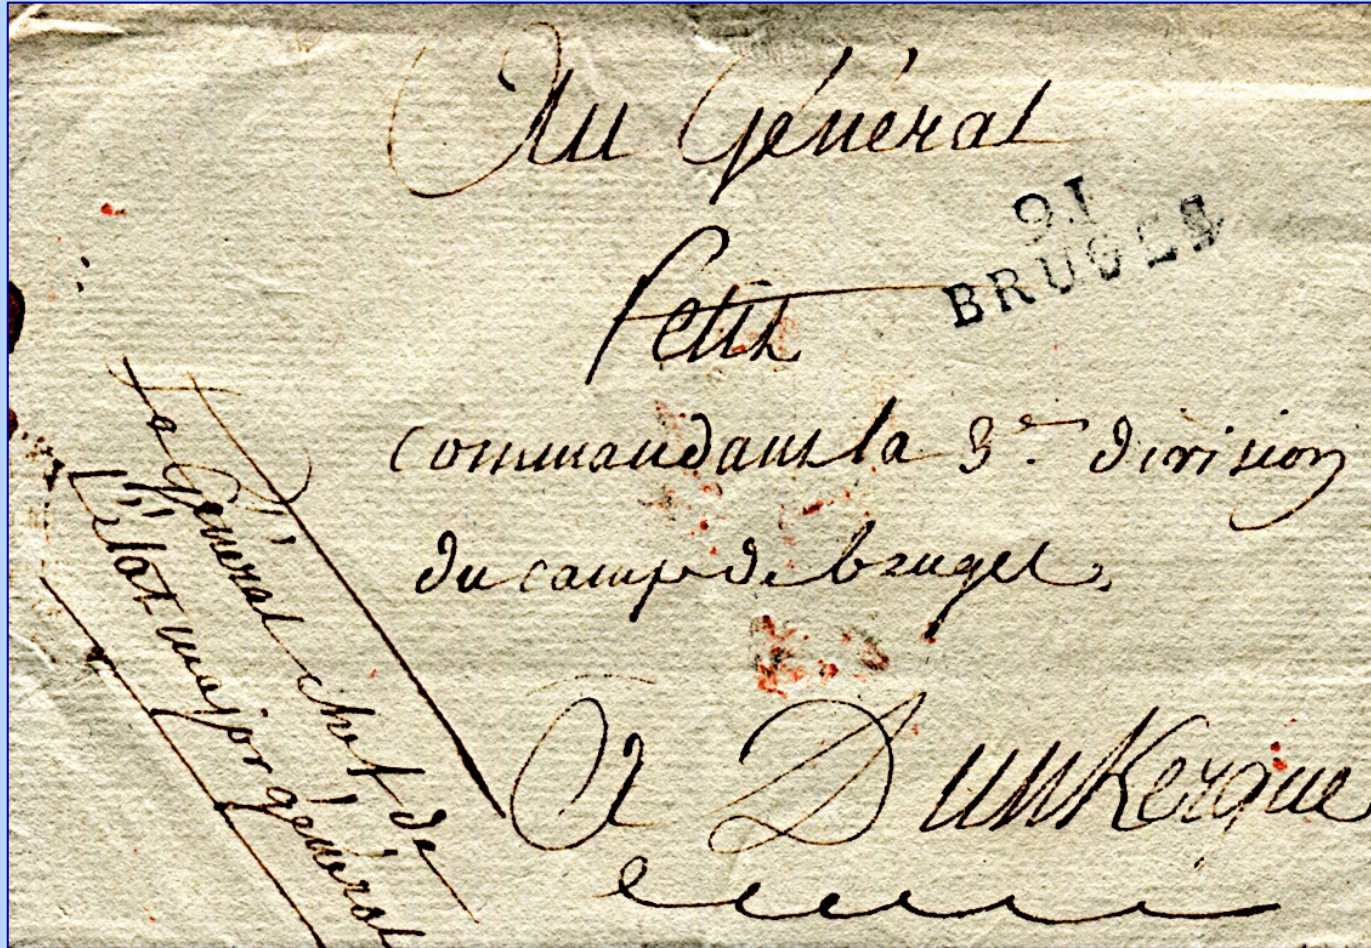 Au Général
91
BRUGES
Petit
commandant la 3e division
du camp de bruges,
A Dunkerque
Le Général chef de
L'état major général